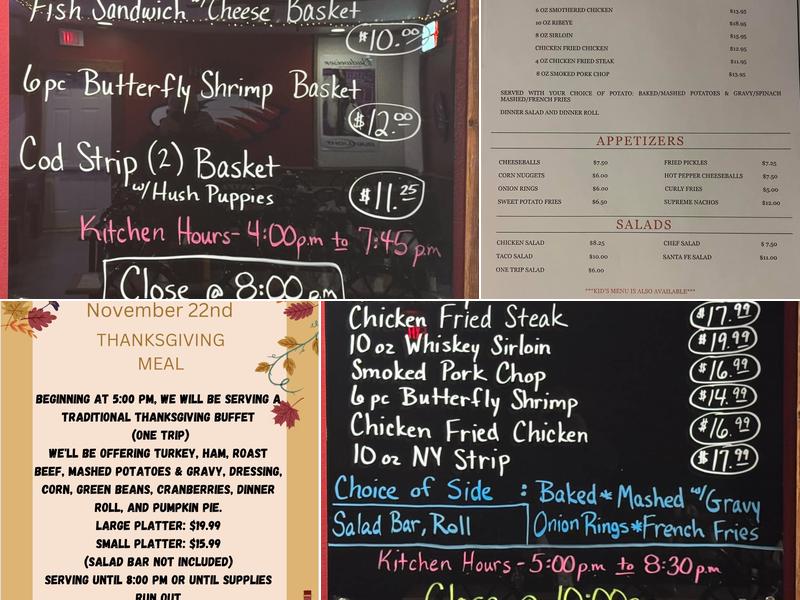 Fish Sandwich w/Cheese Basket
$10.00
6pc Butterfly Shrimp Basket
$12.00
Cod Strip (2) Basket
w/ Hush Puppies
$11.25
Kitchen Hours - 4:00p.m to 7:45 p.m
Close @ 8:00 p.m
6 OZ SMOTHERED CHICKEN $13.95
10 OZ RIBEYE $18.95
8 OZ SIRLOIN $15.95
CHICKEN FRIED CHICKEN $12.95
4 OZ CHICKEN FRIED STEAK $11.95
8 OZ SMOKED PORK CHOP $13.95
SERVED WITH YOUR CHOICE OF POTATO: BAKED/MASHED POTATOES & GRAVY/SPINACH
MASHED/FRENCH FRIES
DINNER SALAD AND DINNER ROLL
APPETIZERS
CHEESEBALLS $7.50 FRIED PICKLES $7.25
CORN NUGGETS $6.00 HOT PEPPER CHEESEBALLS $7.50
ONION RINGS $6.00 CURLY FRIES $5.00
SWEET POTATO FRIES $6.50 SUPREME NACHOS $12.00
SALADS
CHICKEN SALAD $8.25 CHEF SALAD $ 7.50
TACO SALAD $10.00 SANTA FE SALAD $11.00
ONE TRIP SALAD $6.00
***KID'S MENU IS ALSO AVAILABLE***
November 22nd
THANKSGIVING
MEAL
BEGINNING AT 5:00 PM, WE WILL BE SERVING A
TRADITIONAL THANKSGIVING BUFFET
(ONE TRIP)
WE'LL BE OFFERING TURKEY, HAM, ROAST
BEEF, MASHED POTATOES & GRAVY, DRESSING,
CORN, GREEN BEANS, CRANBERRIES, DINNER
ROLL, AND PUMPKIN PIE.
LARGE PLATTER: $19.99
SMALL PLATTER: $15.99
(SALAD BAR NOT INCLUDED)
SERVING UNTIL 8:00 PM OR UNTIL SUPPLIES
RUN OUT
Chicken Fried Steak $17.99
10 oz Whiskey Sirloin $19.99
Smoked Pork Chop $16.99
6 pc Butterfly Shrimp $14.99
Chicken Fried Chicken $16.99
10 oz NY Strip $17.99
Choice of Side : Baked * Mashed w/Gravy
Salad Bar, Roll Onion Rings * French Fries
Kitchen Hours - 5:00p.m to 8:30p.m
Close @ 10:00p.m